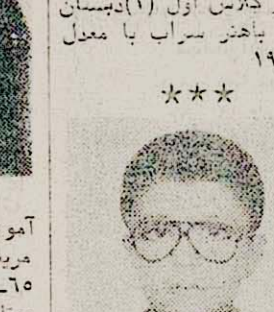 کلاس اول (۱) دبستان
باهنر سراب با معدل
۱۹
***
آمو
مریـ
۶۵ـ